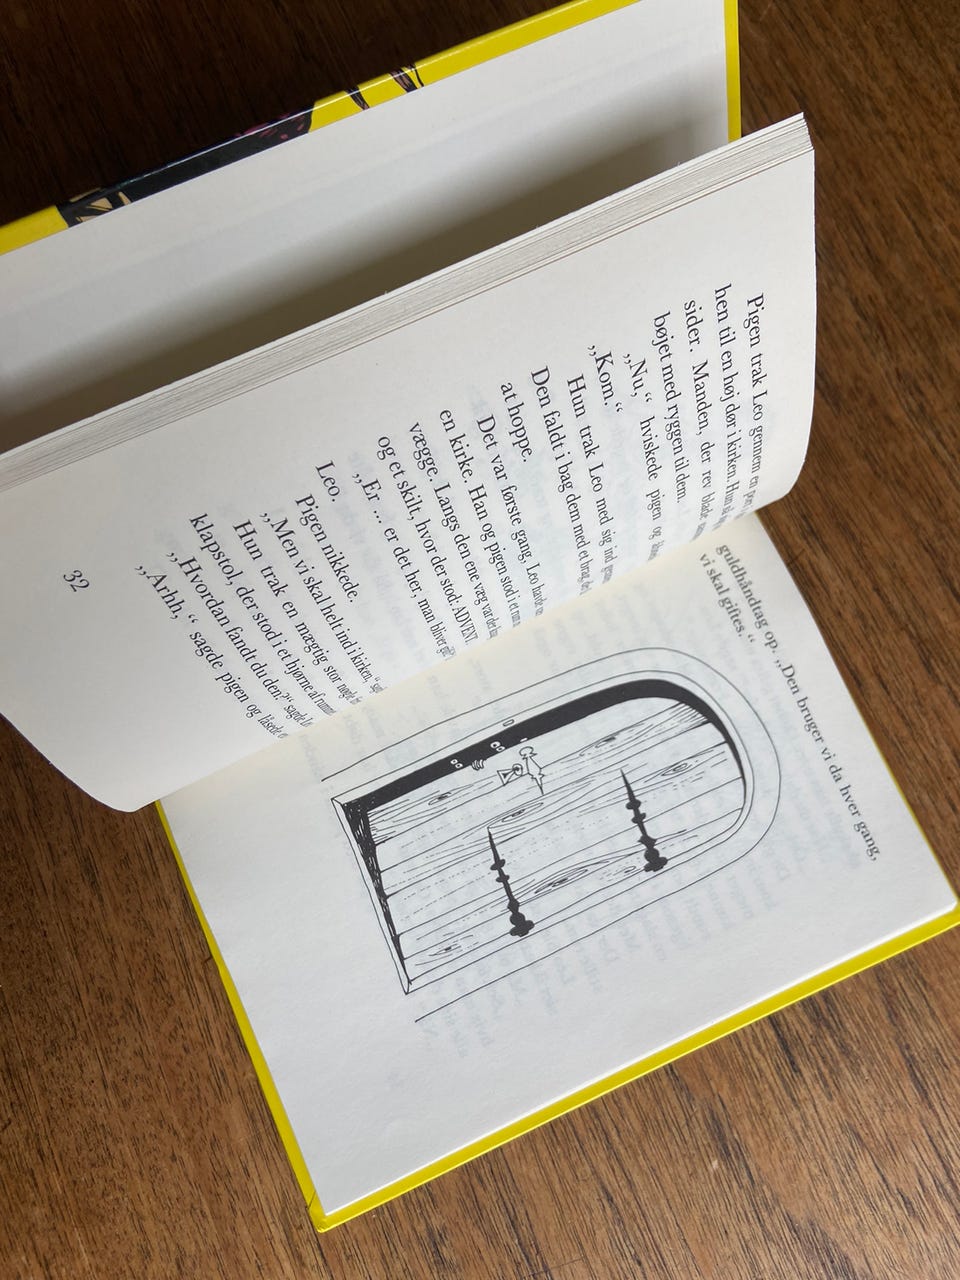 Pigen trak Leo gennem en
hen til en høj dør i kirken. Hun så
sider. Manden, der rev blade
bøjet med ryggen til dem.
„Nu,“ hviskede pigen og
„Kom.“
Hun trak Leo med sig ind
Den faldt i bag dem med et brag,
at hoppe.
Det var første gang, Leo havde
en kirke. Han og pigen stod i et
vægge. Langs den ene væg var der
og et skilt, hvor der stod: ADVENT
„Er ... er det her, man bliver
Leo.
Pigen nikkede.
„Men vi skal helt ind i kirken,“
Hun trak en mægtig stor nøgle
klapstol, der stod i et hjørne af rummet
„Hvordan fandt du den?“ sagde
„Arhh,“ sagde pigen og låsede
32
guldhåndtag op. „Den bruger vi da hver gang,
vi skal giftes.“